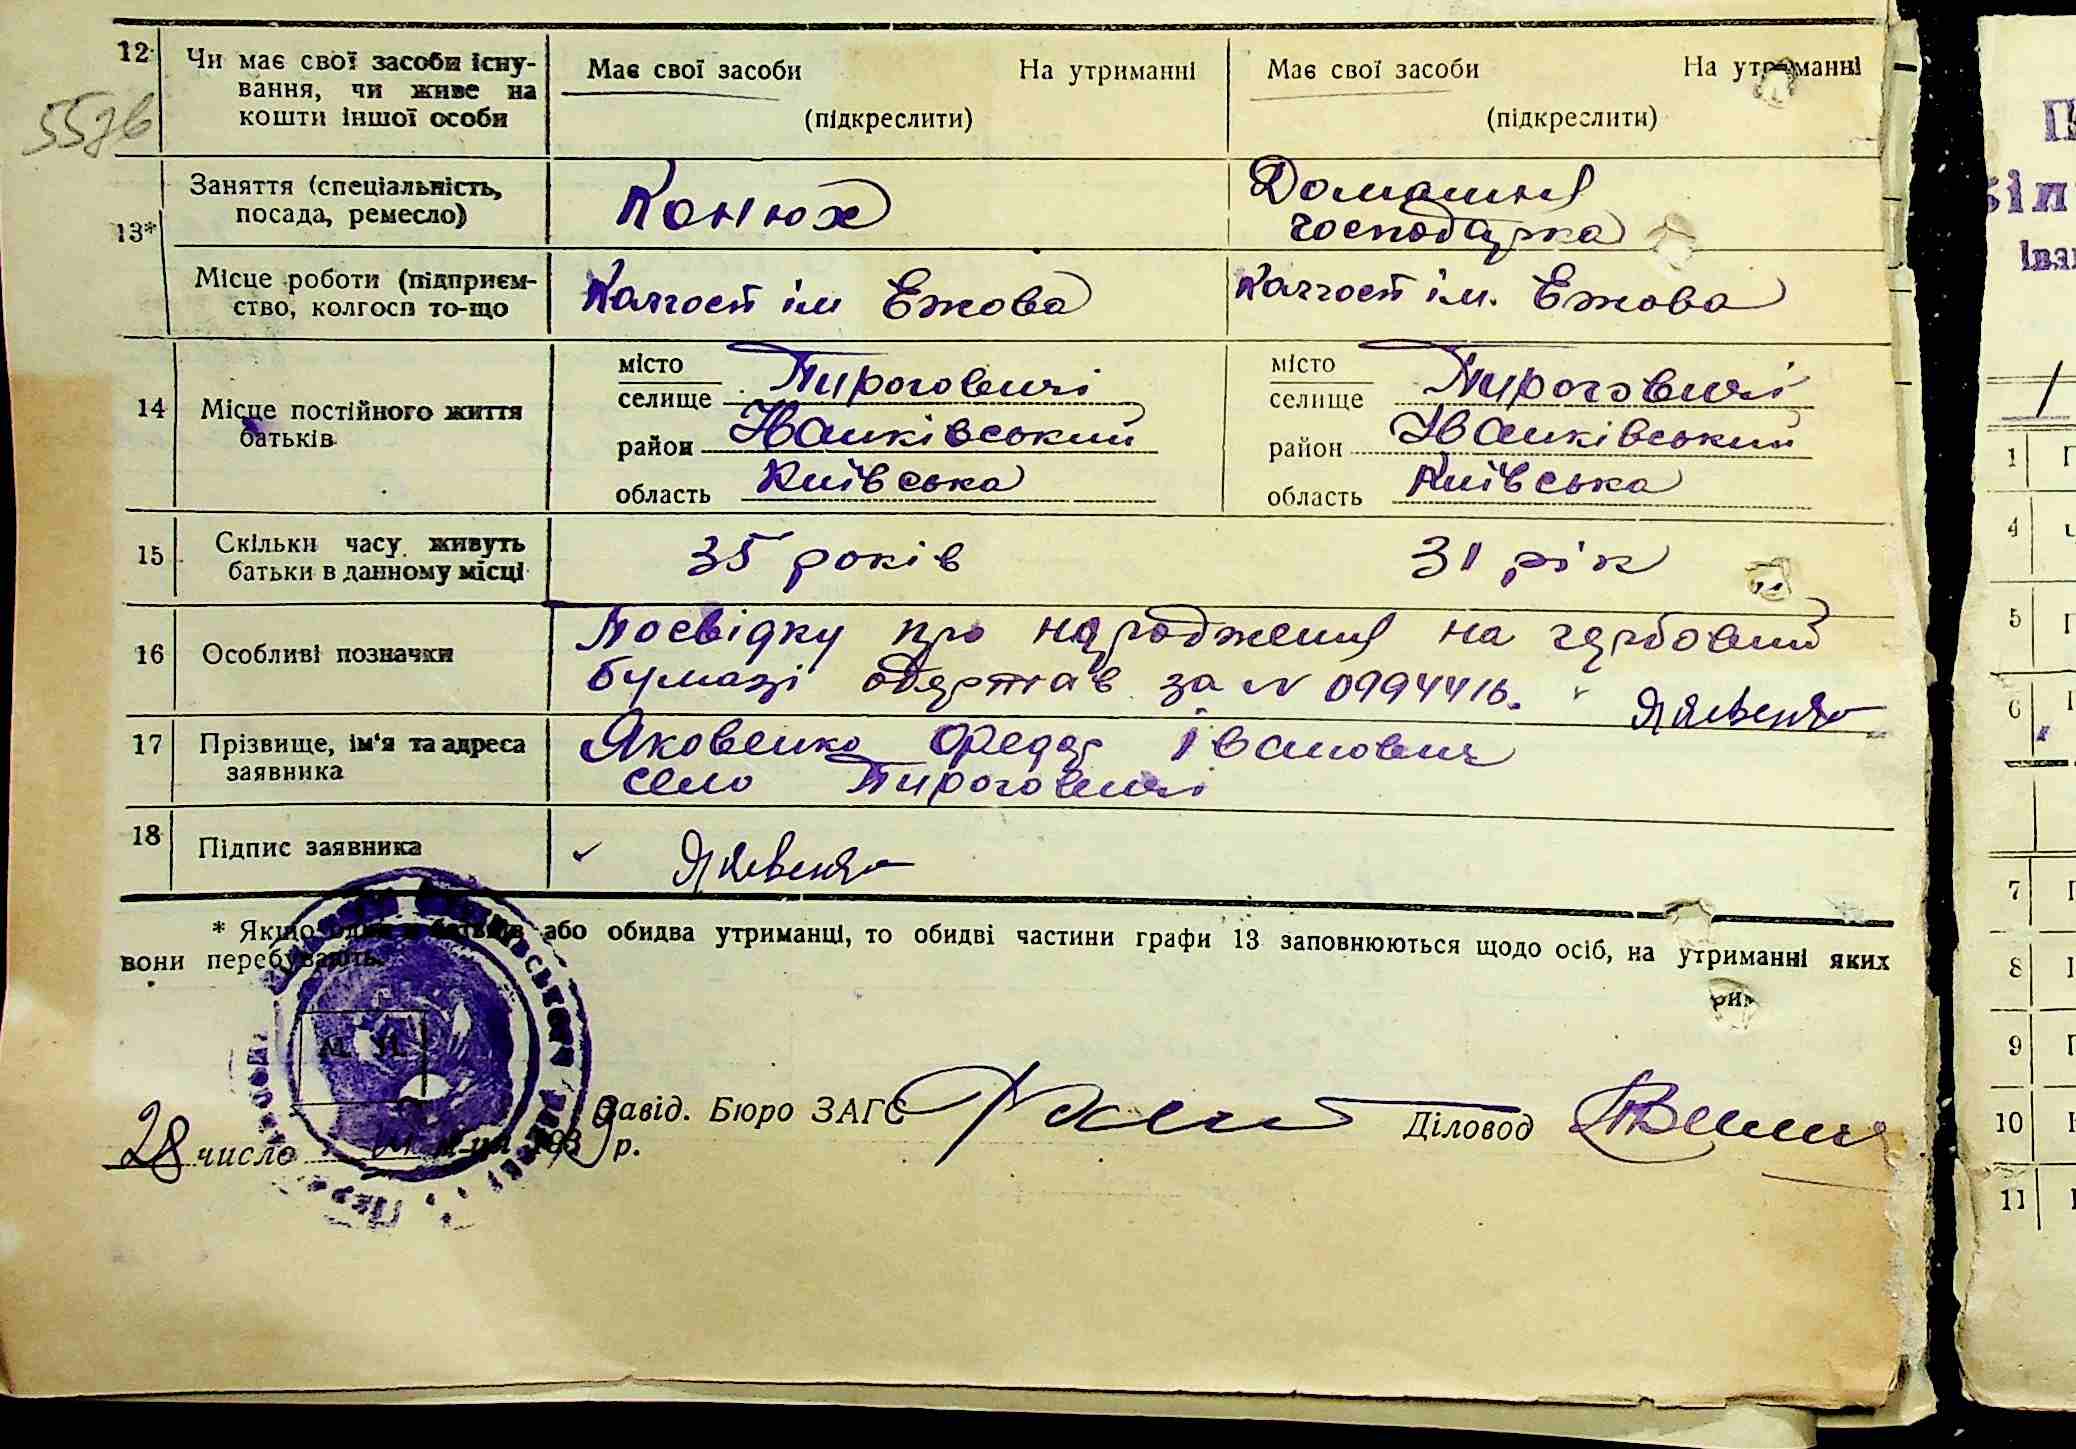 12 Чи має свої засоби існу-
вання, чи живе на
кошти іншої особи
Має свої засоби На утриманні
(підкреслити)
Має свої засоби На утриманні
(підкреслити)
5576
13*
Заняття (спеціальність,
посада, ремесло)
Конюх
Домашня
господарка
Місце роботи (підприєм-
ство, колгосп то-що
Колгосп ім Ежова
Колгосп ім. Ежова
14 Місце постійного життя
батьків
місто
селище Пироговичі
район Іванківський
область Київська
місто
селище Пироговичі
район Іванківський
область Київська
15 Скільки часу живуть
батьки в данному місці
35 років
31 рік
16 Особливі позначки
Посвідку про народження на гербовий
бумазі одержав за № 0994416.
17 Прізвище, ім'я та адреса
заявника
Яковенко Федор Іванович
село Пироговичі
18 Підпис заявника
* Якщо один з батьків або обидва утриманці, то обидві частини графи 13 заповнюються щодо осіб, на утриманні яких
вони перебувають.
М. П.
Завід. Бюро ЗАГС
Діловод
28 число м-ця 1939 р.
1
4
5
6
7
8
9
10
11